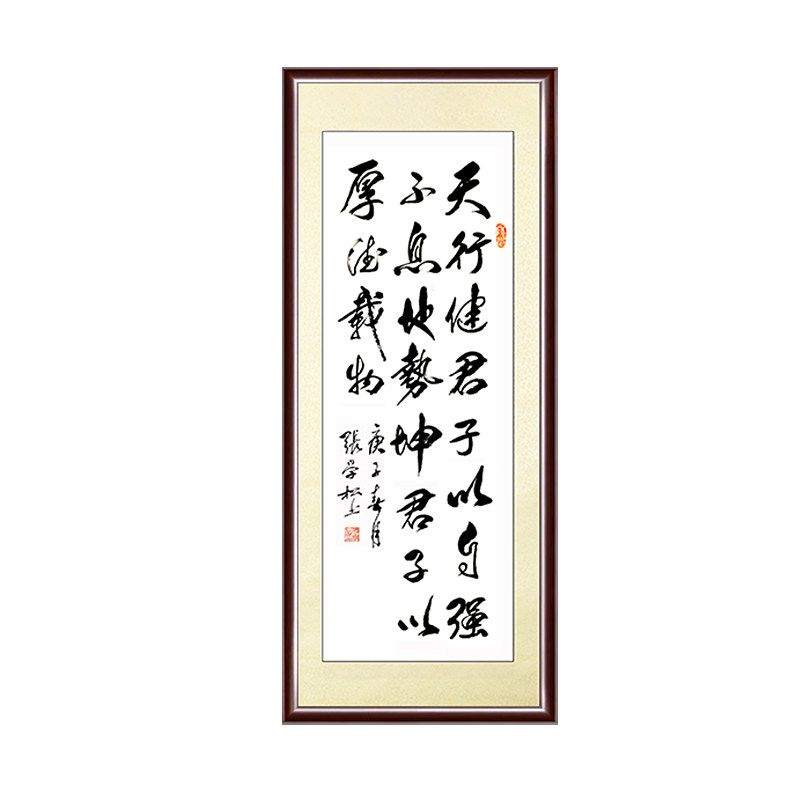 天行健君子以自强
不息地勢坤君子以
厚德載物
庚子春月
張学松上